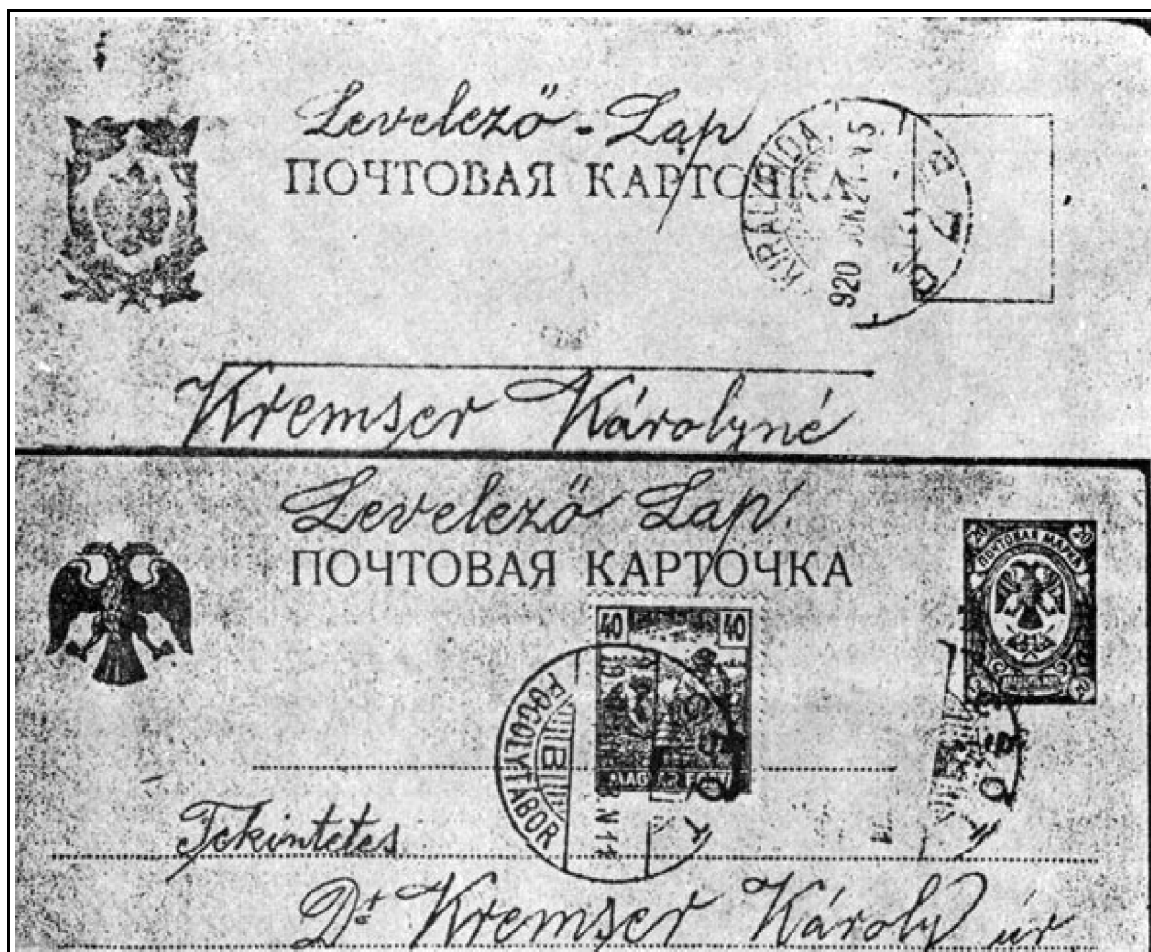 Levelező - Lap
ПОЧТОВАЯ КАРТОЧКА
KIRALYHIDA
920 JUN 21
Kremser Károlyné
Levelező Lap.
ПОЧТОВАЯ КАРТОЧКА
20 20
ПОЧТОВАЯ МАРКА
40 40
MAGYAR
FOGOLYTÁBOR
B
Tekintetes
Dr Kremser Károly úr